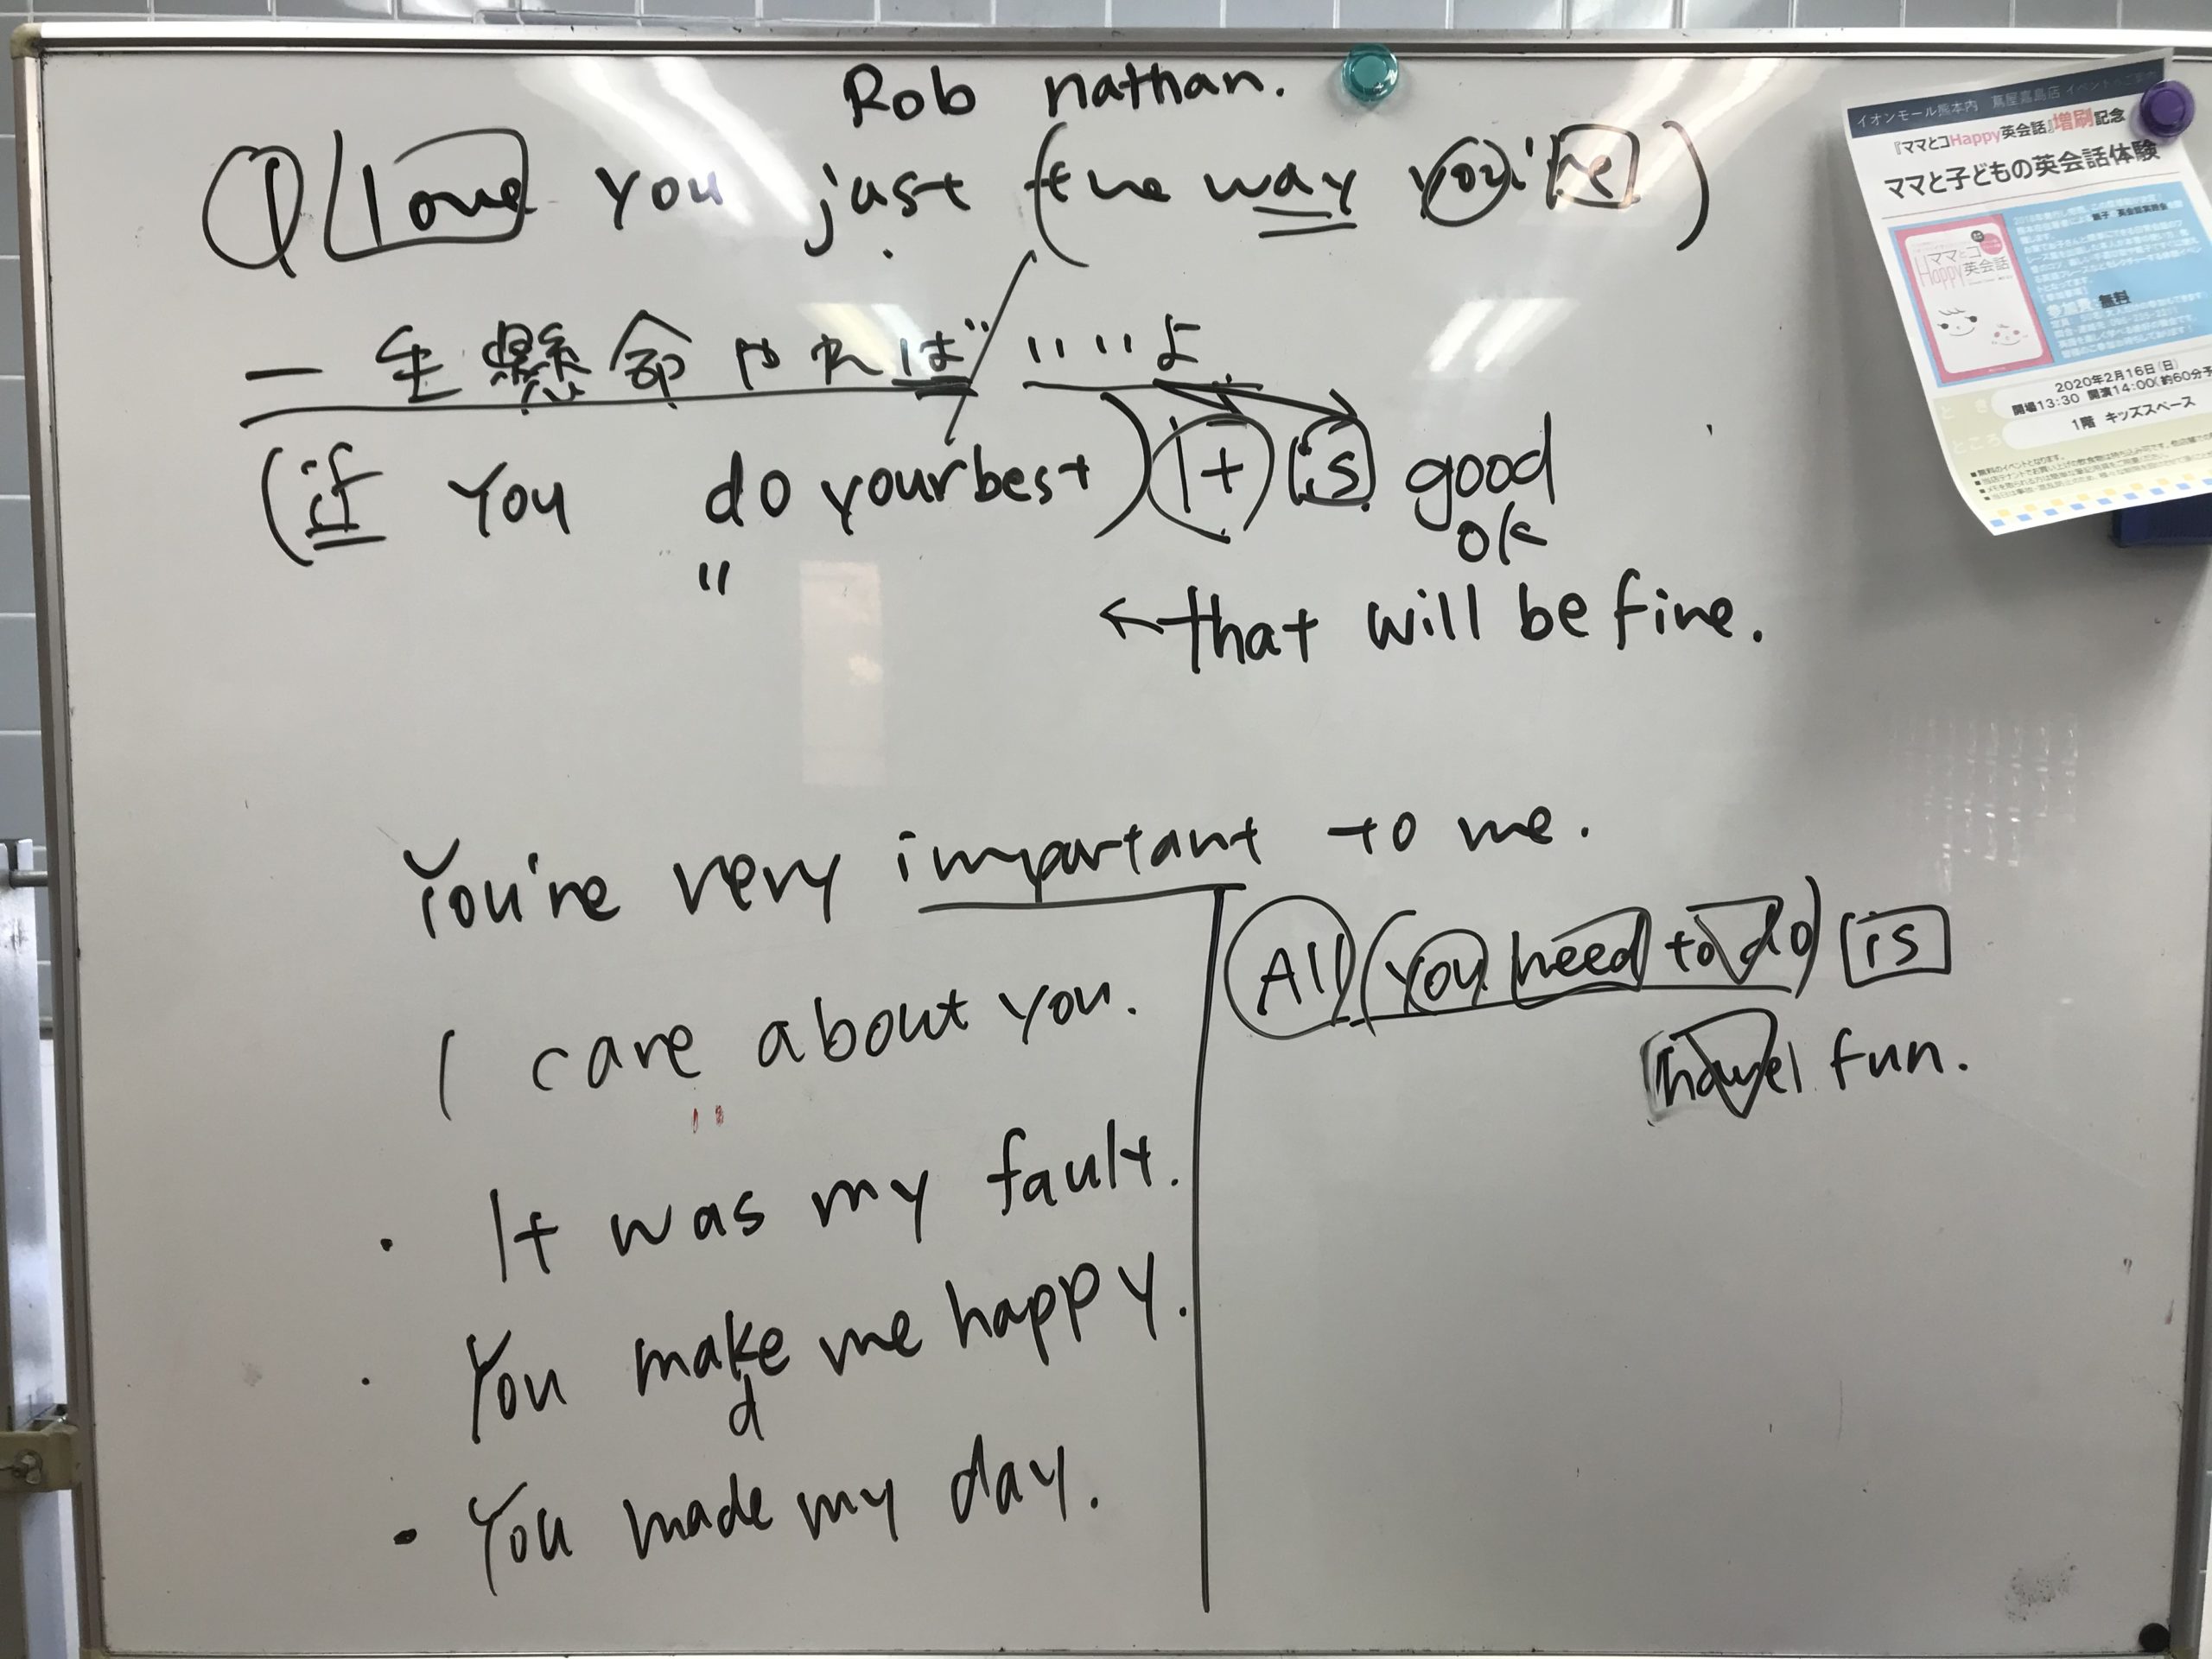 Rob nathan.
I love you just (the way you're)
一生懸命やれば いいよ
(if you do your best) It is good
ok
"
← that will be fine.
You're very important to me.
I care about you.
· It was my fault.
· You make me happy.
d
· You made my day.
All (you need to do) is
have fun.
イオンモール熊本内 蔦屋嘉島店 イベントのご案内
『ママとコHappy英会話』増刷記念
ママと子どもの英会話体験
ママとコ
Happy英会話
参加費:無料
とき
2020年2月16日(日)
開場13:30 開演14:00(約60分予
ところ
1階 キッズスペース
■無料のイベントとなります。